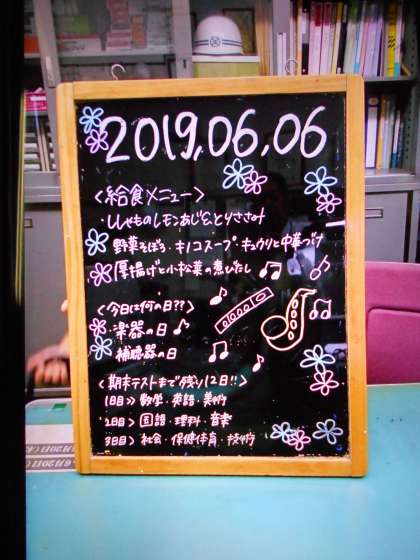 2019.06.06
<給食メニュー>
・ししゃものレモンあじ&とりささみ
野菜そぼろ・キノコスープ・キュウリと中華づけ
厚揚げと小松菜の煮びたし
<今日は何の日??>
・楽器の日♪
・補聴器の日
<期末テストまで残り12日!!>
1日目>> 数学・英語・美術
2日目>> 国語・理科・音楽
3日目>> 社会・保健体育・技術
6月20日(木
6月20日(